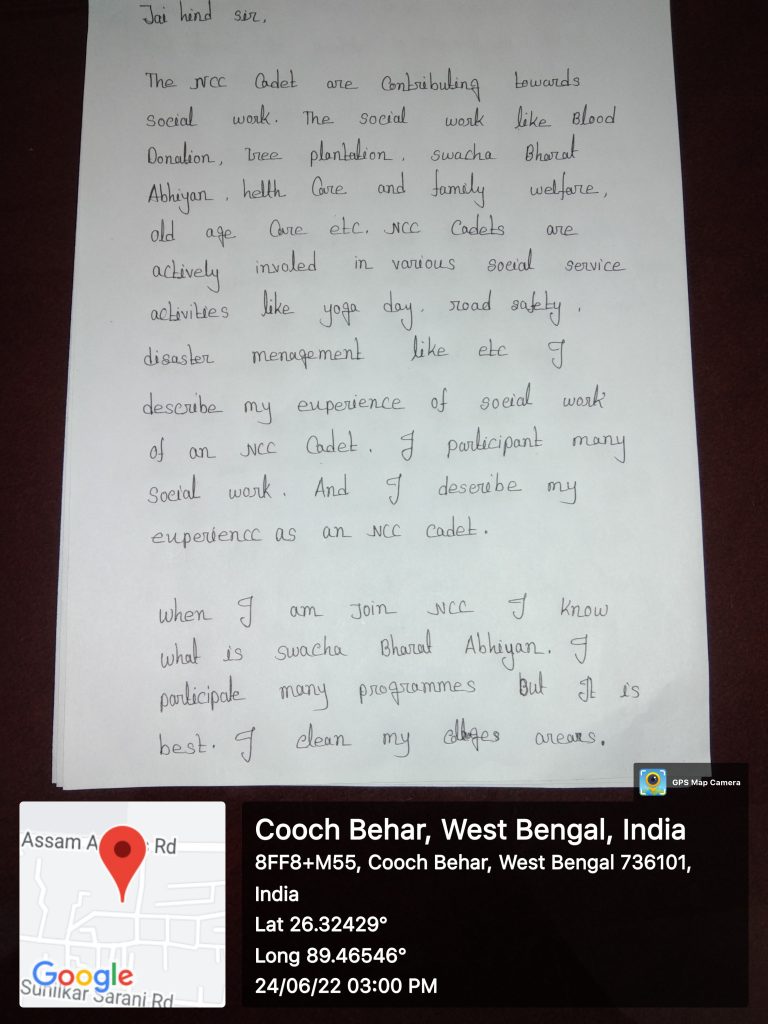 Jai hind sir,
The NCC Cadet are Contributing towards
Social work. The social work like Blood
Donation, tree plantation, swacha Bharat
Abhiyan, helth Care and family welfare,
old age Care etc. NCC Cadets are
actively involed in various social service
activities like yoga day, road safety,
disaster menagement like etc I
describe my euperience of social work
of an NCC Cadet. I participant many
Social work. And I describe my
euperience as an NCC cadet.
When I am Join NCC I Know
what is swacha Bharat Abhiyan. I
participate many programmes But It is
best. I clean my areas.
GPS Map Camera
Assam A s Rd
Google
Sunilkar Sarani Rd
Cooch Behar, West Bengal, India
8FF8+M55, Cooch Behar, West Bengal 736101,
India
Lat 26.32429°
Long 89.46546°
24/06/22 03:00 PM